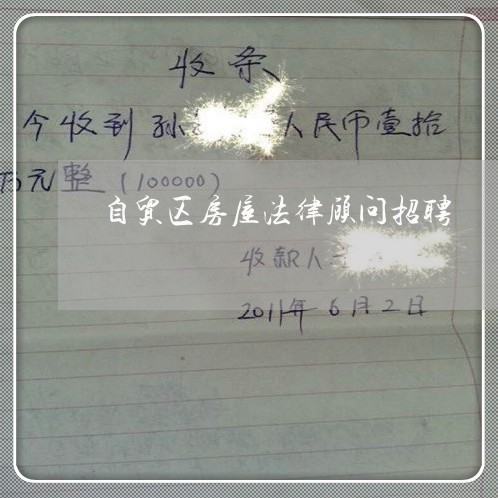 收条
今收到孙 人民币壹拾
万元整（100000）
自贸区房屋法律顾问招聘
收款人
2011年6月2日